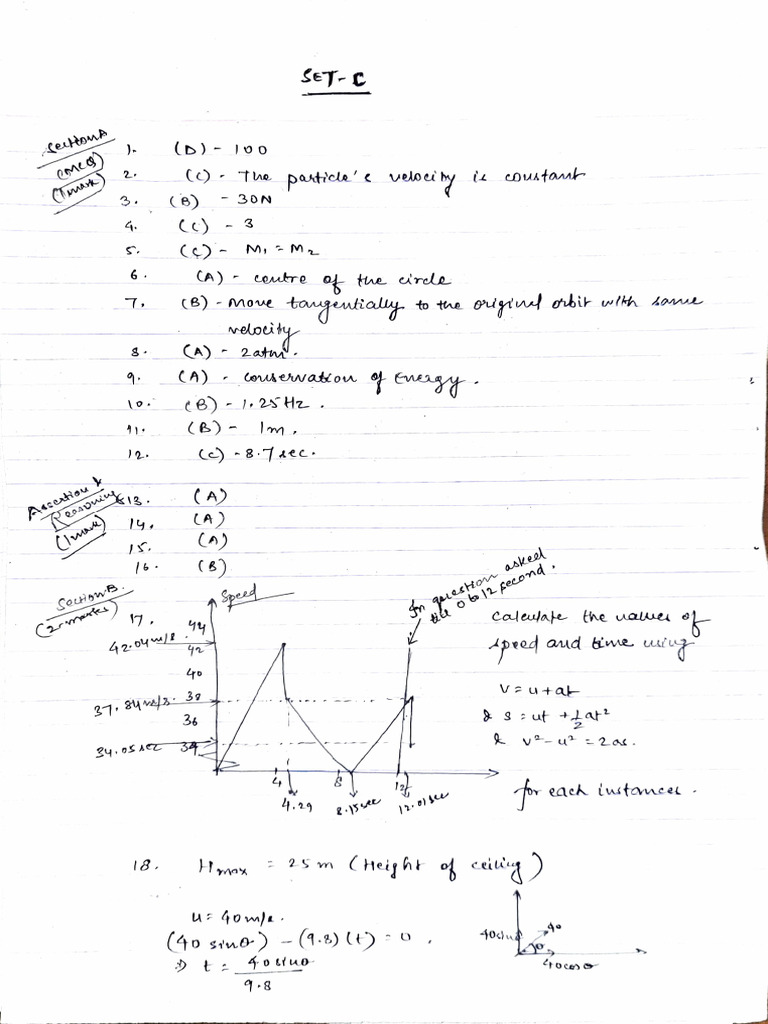 SET-C
Section A
(MCQ)
(1 mark)
1. (D) - 100
2. (C) - The particle's velocity is constant
3. (B) - 30N
4. (C) - 3
5. (C) - M1 = M2
6. (A) - centre of the circle
7. (B) - Move tangentially to the original orbit with same
velocity
8. (A) - 2atm.
9. (A) - conservation of Energy.
10. (B) - 1.25 Hz.
11. (B) - 1m.
12. (C) - 8.7 sec.
Assertion &
Reasoning
(1 mark)
13. (A)
14. (A)
15. (A)
16. (B)
Section B.
(2-marks)
17.
Speed
In question asked
till 0 to 12 second.
44
42.04 m/s.
42
40
37.84 m/s.
38
36
34.05 sec
34
4
8
12
4.29
8.15 sec
12.01 sec
Calculate the values of
speed and time using
v = u + at
& s = ut + 1/2 at²
& v² - u² = 2as.
for each instances.
18. Hmax = 25m (Height of ceiling)
u = 40 m/s.
(40 sinθ) - (9.8)(t) = 0.
⇒ t = 40 sinθ
9.8
40sinθ
40
θ
40cosθ